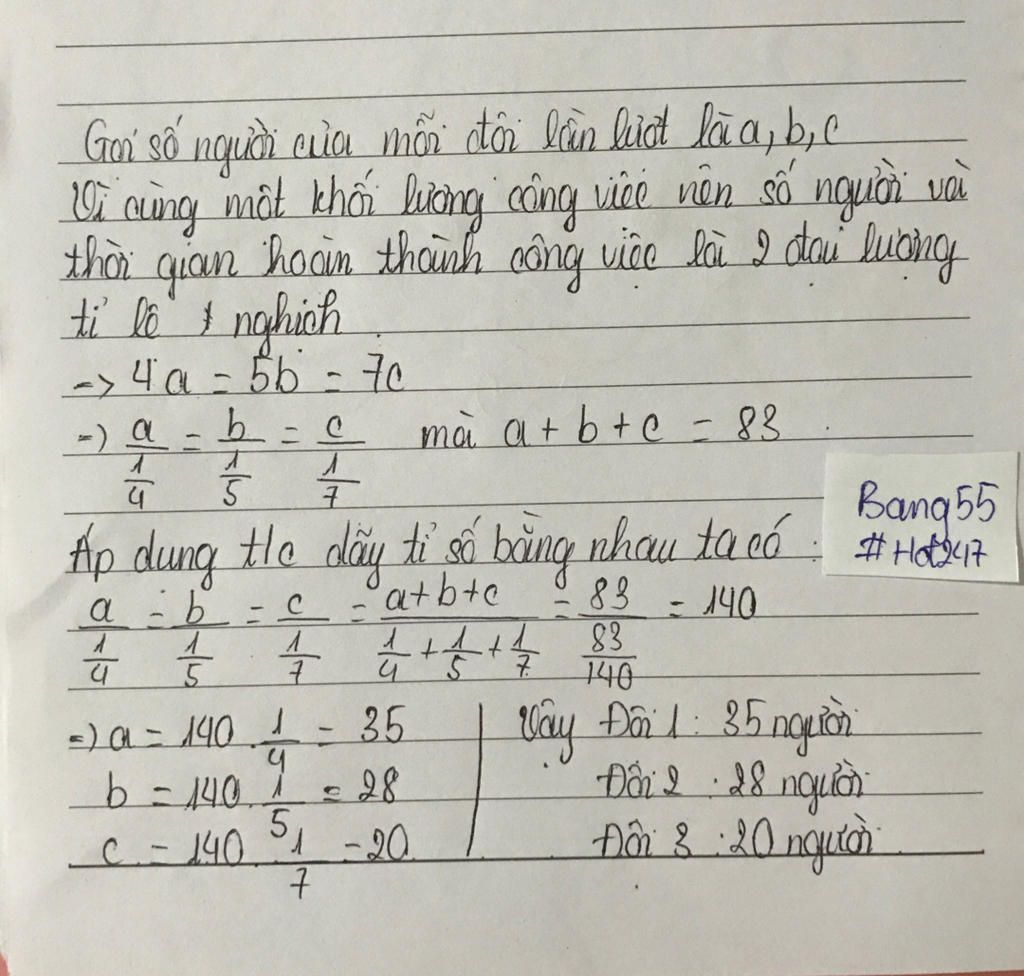 Gọi số người của mỗi đội lần lượt là a, b, c
Vì cùng một khối lượng công việc nên số người và
thời gian hoàn thành công việc là 2 đại lượng
tỉ lệ nghịch
-> 4a = 5b = 7c
=) a/(1/4) = b/(1/5) = c/(1/7) mà a + b + c = 83
Áp dụng t/c dãy tỉ số bằng nhau ta có:
a/(1/4) = b/(1/5) = c/(1/7) = (a+b+c)/(1/4 + 1/5 + 1/7) = 83/(83/140) = 140
=) a = 140 . 1/4 = 35
b = 140 . 1/5 = 28
c = 140 . 1/7 = 20
Vậy Đội 1: 35 người
Đội 2 : 28 người
Đội 3 : 20 người
Bang55
#Hot247